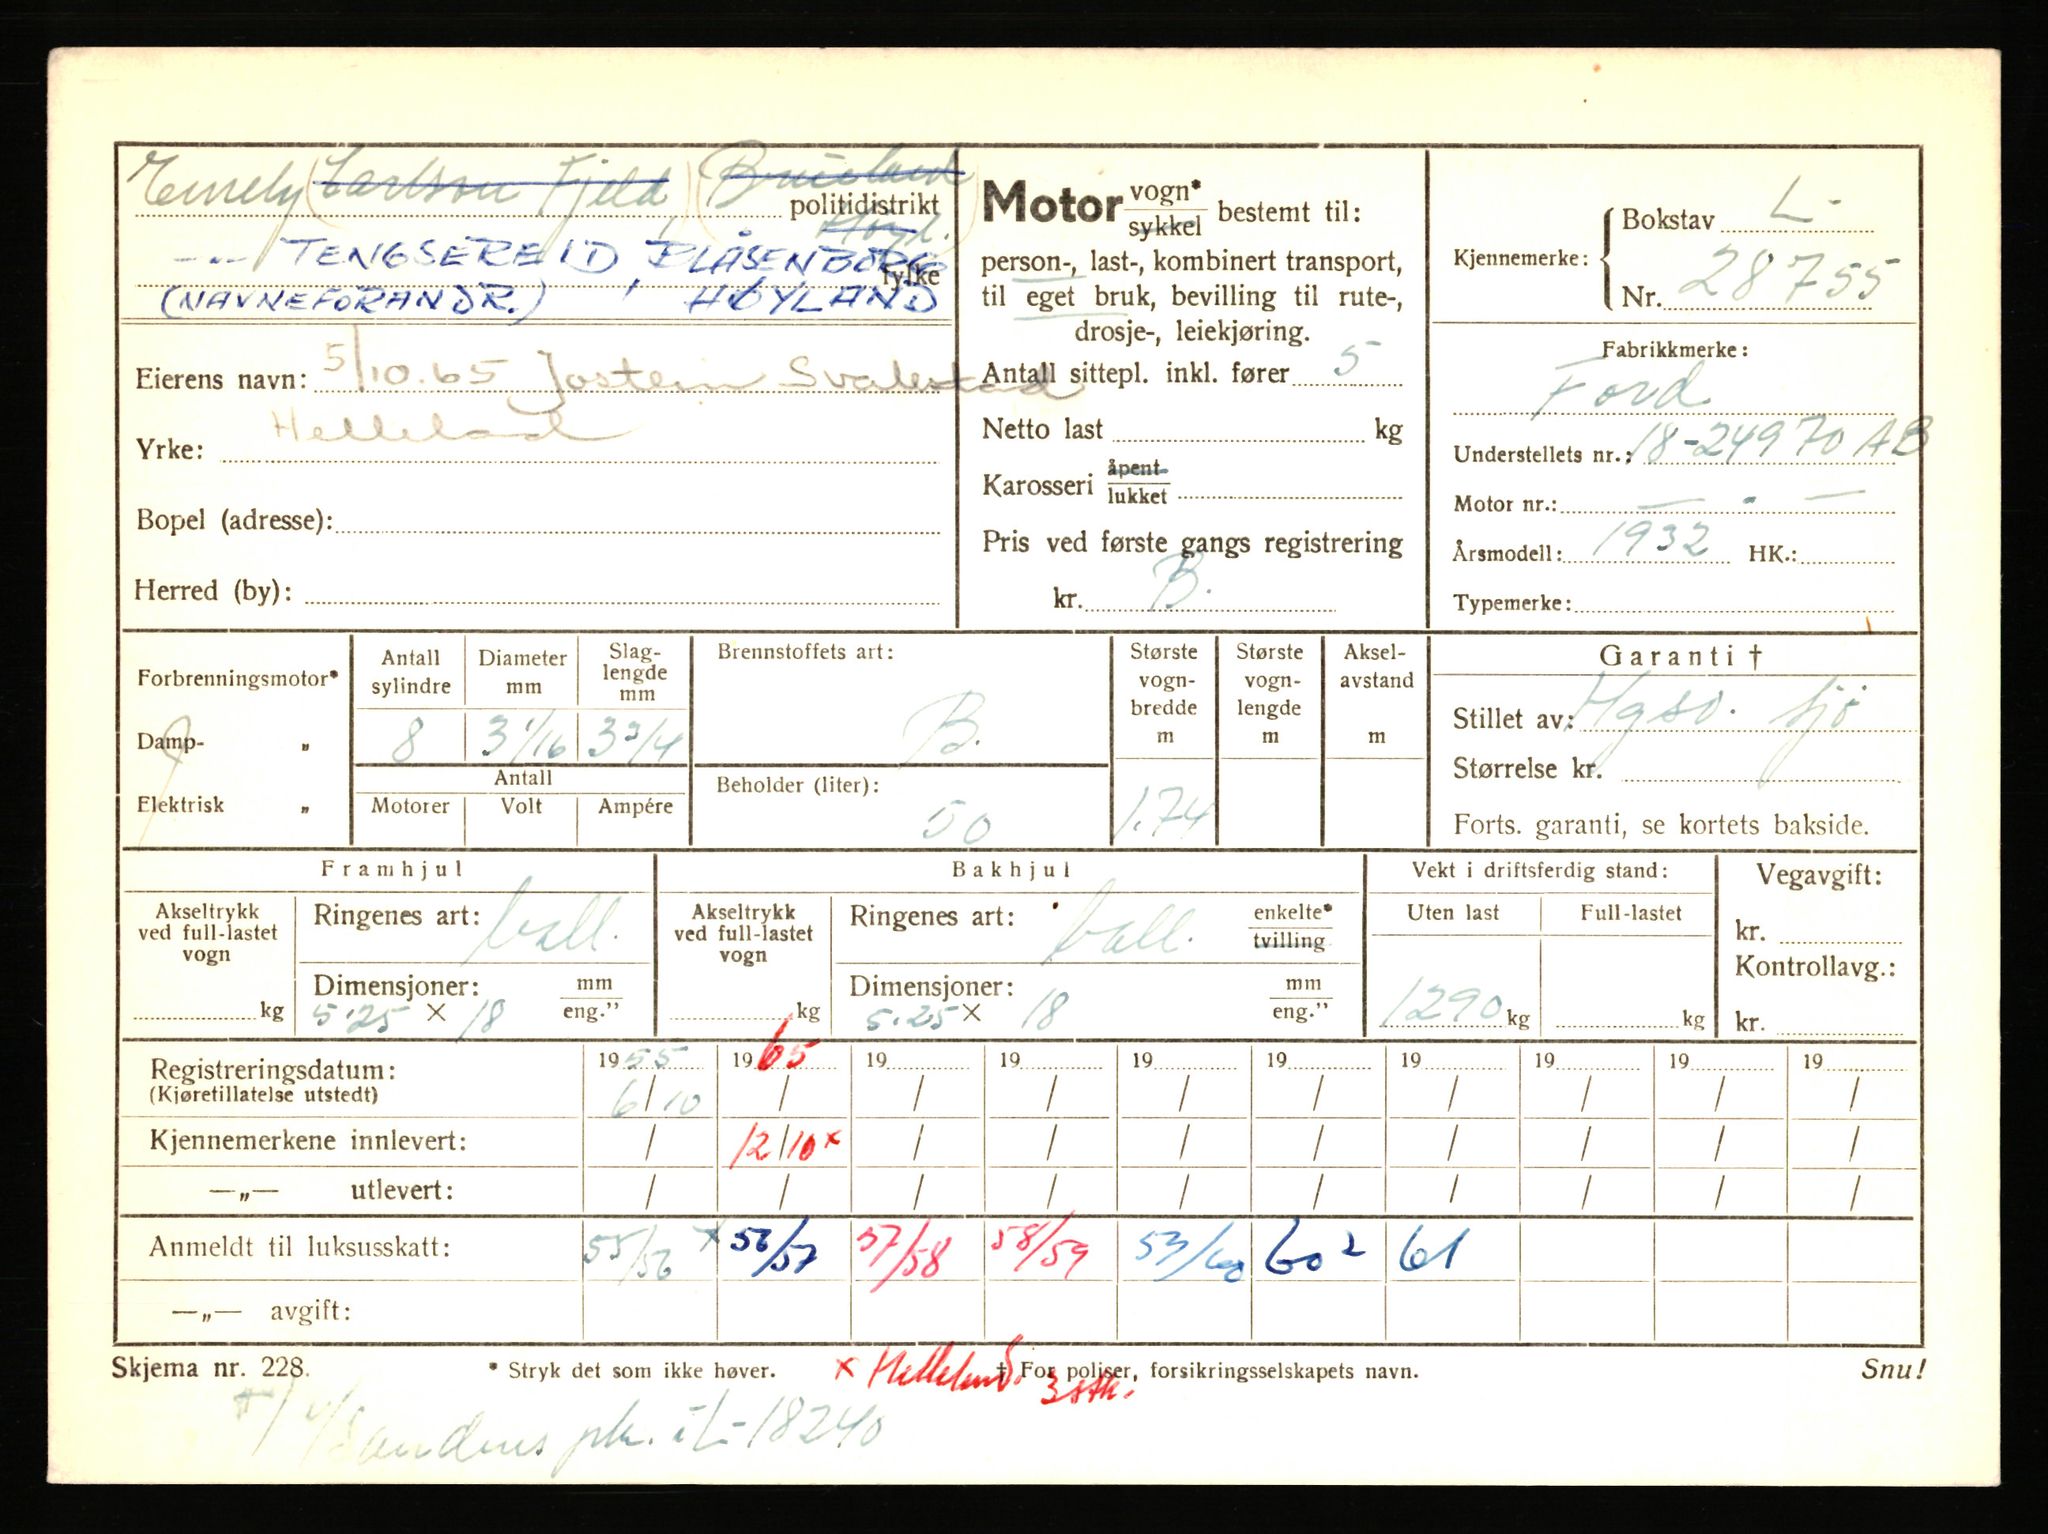 Emely (Carlson Fjeld) (Brueland
politidistrikt
Høyl.)
-"- TENGSEREID, BLÅSENBORG
fylke
(NAVNEFORANDR.) HØYLAND
Eierens navn: 5/10.65 Jostein Svalestad
Yrke: Helleland
Bopel (adresse):
Herred (by):
Motor vogn* sykkel bestemt til:
person-, last-, kombinert transport,
til eget bruk, bevilling til rute-,
drosje-, leiekjøring.
Antall sittepl. inkl. fører 5
Netto last kg
Karosseri åpent lukket
Pris ved første gangs registrering
kr. B.
Kjennemerke:
Bokstav L-
Nr. 28755
Fabrikkmerke:
Ford
Understellets nr.: 18-24970 AB
Motor nr.: — " —
Årsmodell: 1932 HK.:
Typemerke:
Forbrenningsmotor*
Damp- "
Elektrisk "
Antall sylindre
8
Diameter mm
3 1/16
Slaglengde mm
3 3/4
Antall
Motorer Volt Ampére
Brennstoffets art:
B.
Beholder (liter):
50
Største vogn-bredde m
1.74
Største vogn-lengde m
Aksel-avstand m
Garanti †
Stillet av:
Størrelse kr.
Forts. garanti, se kortets bakside.
Framhjul
Akseltrykk ved full-lastet vogn
kg
Ringenes art: ball.
Dimensjoner: mm eng."
5.25 × 18
Bakhjul
Akseltrykk ved full-lastet vogn
kg
Ringenes art: ball. enkelte* tvilling
Dimensjoner: mm eng."
5.25 × 18
Vekt i driftsferdig stand:
Uten last Full-lastet
1290 kg kg
Vegavgift:
kr.
Kontrollavg.:
kr.
Registreringsdatum: 1955 1965 19 19 19 19 19 19 19 19
(Kjøretillatelse utstedt) 6/10 / / / / / / / / /
Kjennemerkene innlevert: / 12/10 × / / / / / / / /
—„— utlevert: / / / / / / / / / /
Anmeldt til luksusskatt: 55/56 × 56/57 57/58 58/59 59/60 60² 61
—„— avgift:
Skjema nr. 228. * Stryk det som ikke høver. † For poliser, forsikringsselskapets navn. Snu!
× Helleland 3 stk.
pk. i L-18240